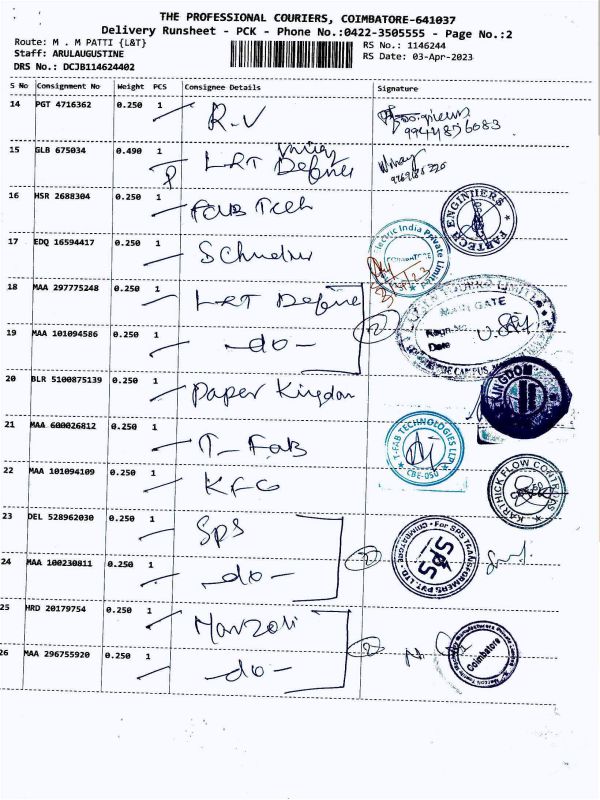 THE PROFESSIONAL COURIERS, COIMBATORE-641037
Delivery Runsheet - PCK - Phone No.:0422-3505555 - Page No.:2
Route: M . M PATTI {L&T} RS No.: 1146244
Staff: ARULAUGUSTINE RS Date: 03-Apr-2023
DRS No.: DCJB114624402
S No Consignment No Weight PCS Consignee Details Signature
14 PGT 4716362 0.250 1 R.V
15 GLB 675034 0.490 1 LRT Defence
16 HSR 2688304 0.250 1 FAB Tech FABTECH ENGINEERS
17 EDQ 16594417 0.250 1 Electric India Private Limited COIMBATORE
18 MAA 297775248 0.250 1 LRT Defence 2 MAIN GATE
19 MAA 101094586 1 - do - Regn. Date CAMPUS
20 BLR 5100875139 0.250 1 Paper Kingdom KINGDOM
21 MAA 600026812 0.250 1 T-FAB T-FAB TECHNOLOGIES LLP CBE-050
22 MAA 101094109 0.250 1 KFC KARTHICK FLOW CONTROLS
23 DEL 528962030 0.250 1 SPS For SPS TRANSFORMERS PVT. LTD. COIMBATORE SPS
24 MAA 100230811 0.250 1 - do - 2
25 HRD 20179754 0.250 1 Marzoli
26 MAA 296755920 0.250 1 - do - 2 Coimbatore